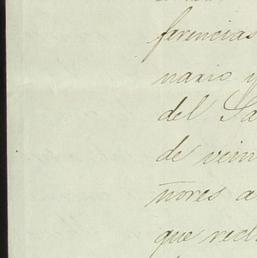 ferencias
nario y
del Sa
de vein
ñores a
que recl